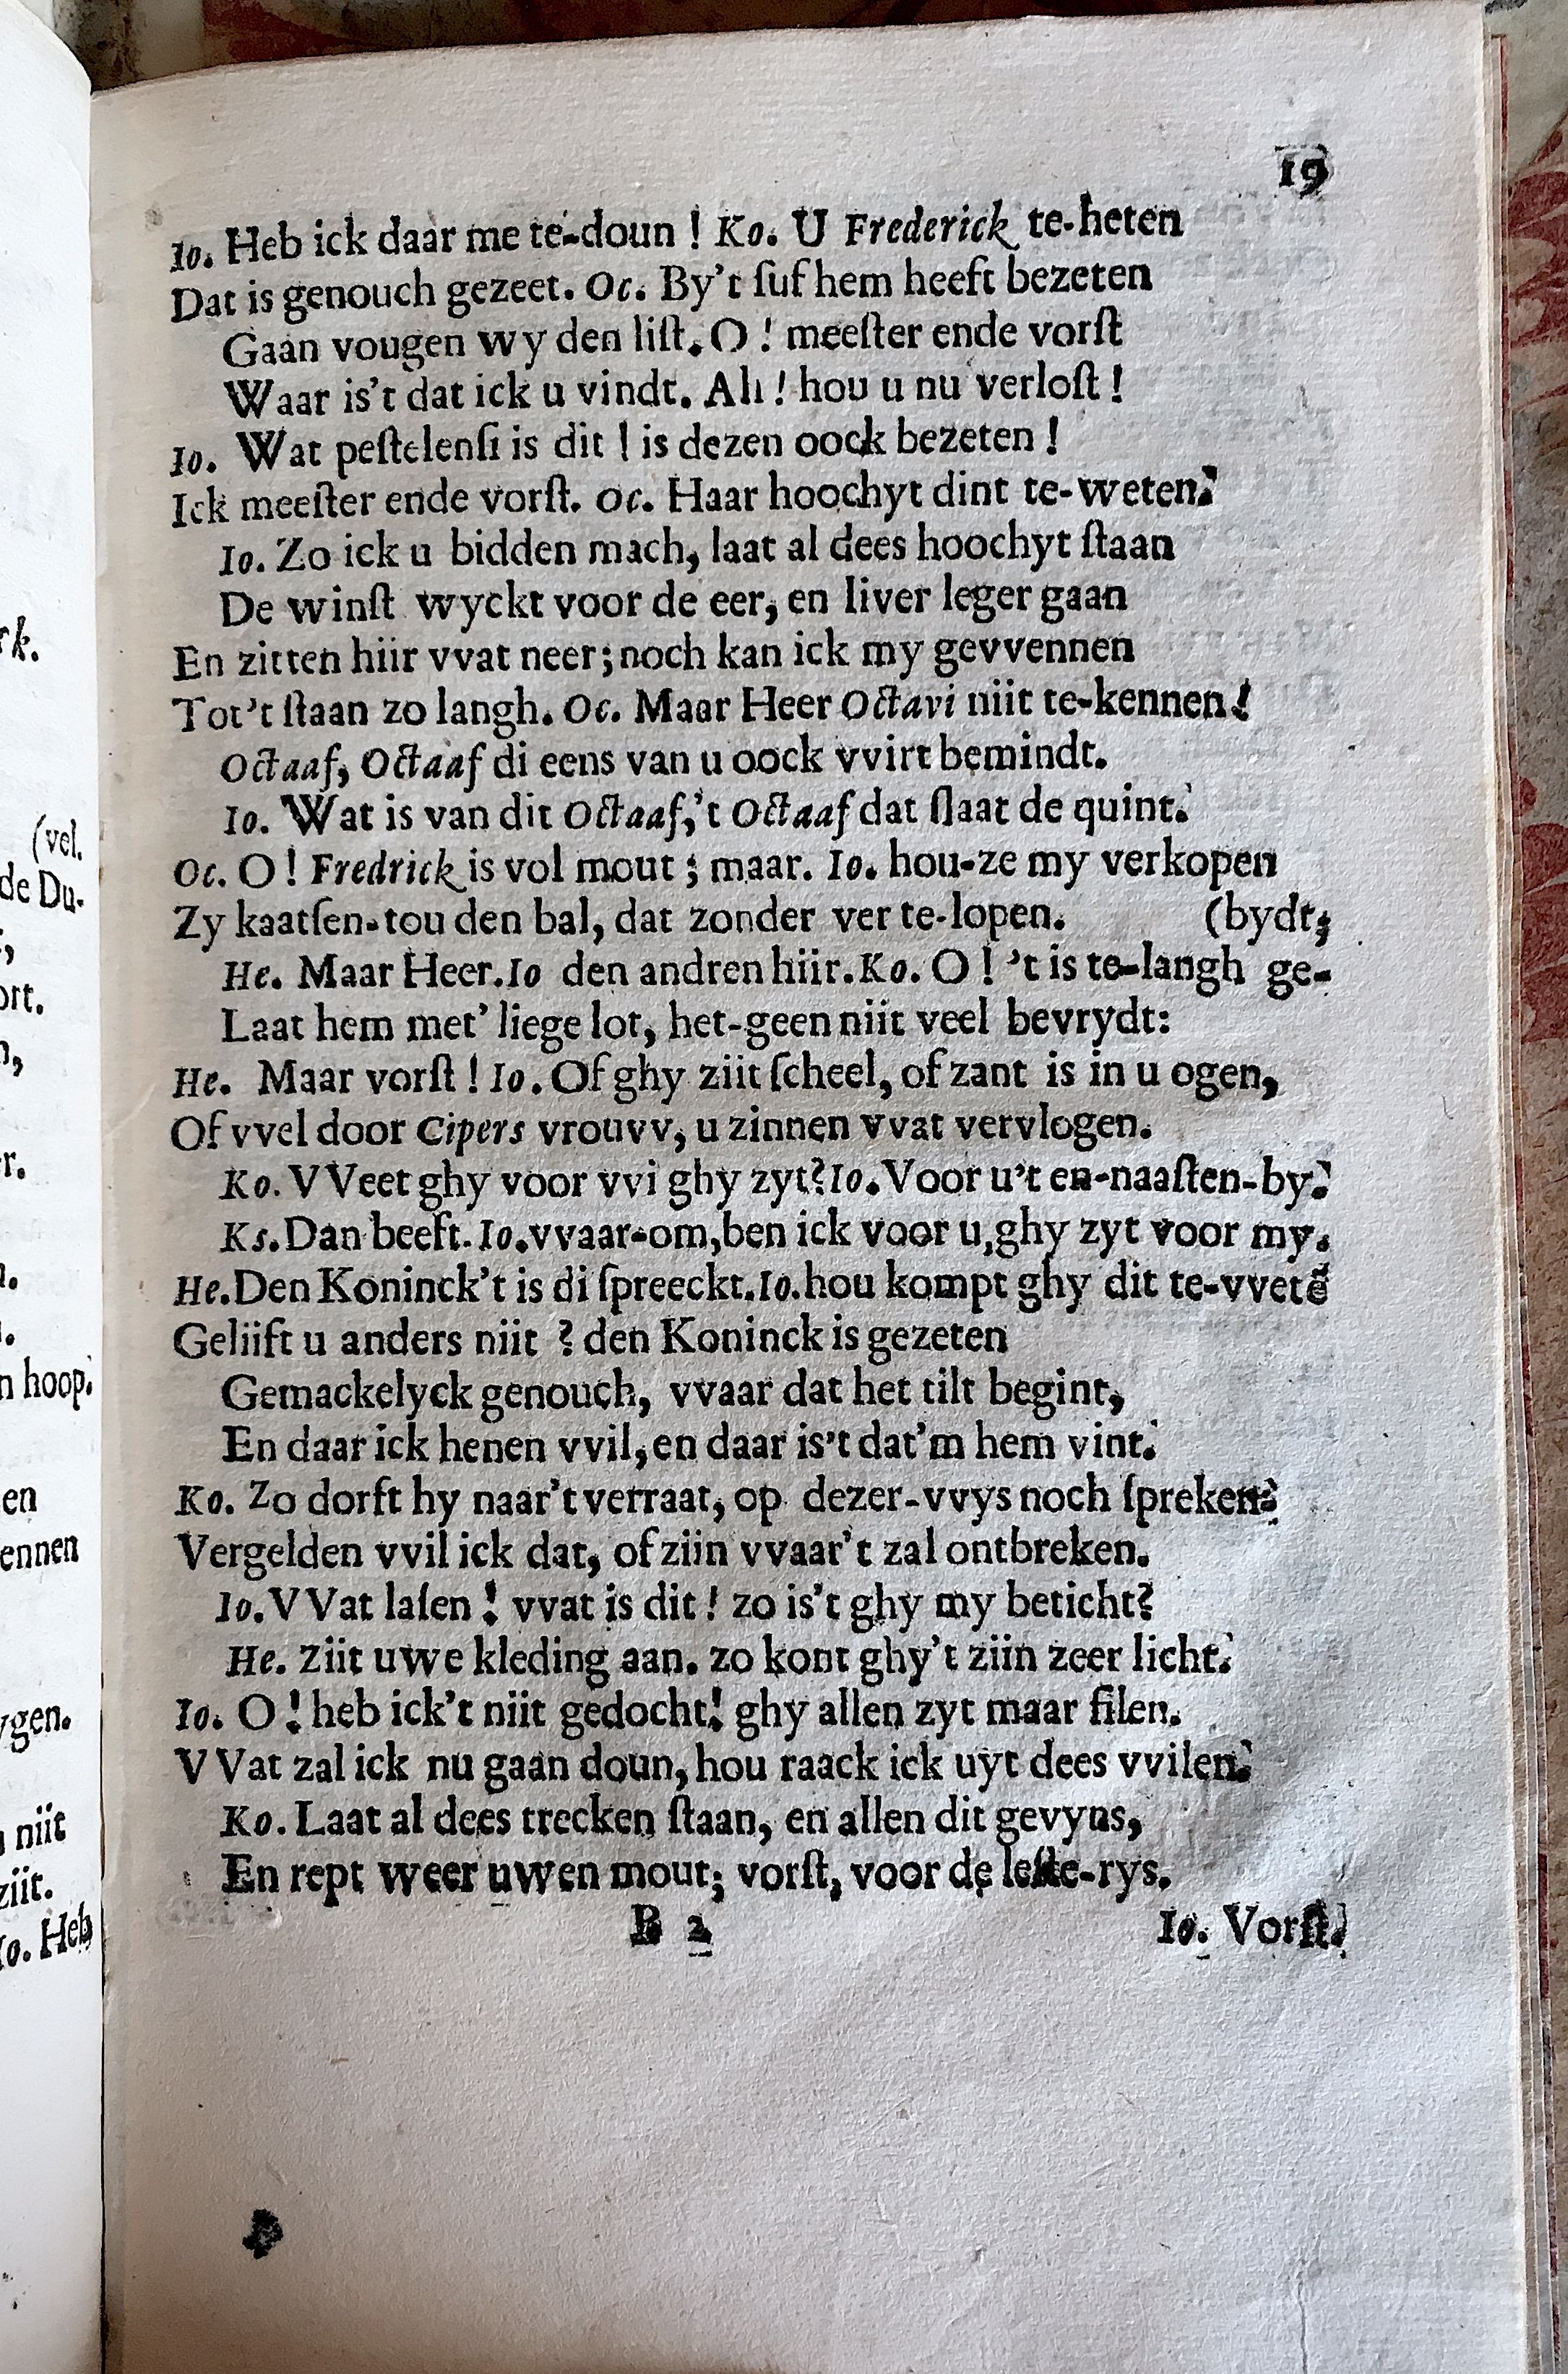 rk.
(vel.
de Du-
ort.
r.
n hoop.
en
ennen
ygen.
niit
ziit.
Io. Heb
19
Io. Heb ick daar me te-doun ! Ko. U Frederick te-heten
Dat is genouch gezeet. Oc. By't ſuf hem heeft bezeten
Gaan vougen wy den liſt. O ! meeſter ende vorſt
Waar is't dat ick u vindt. Ah ! hou u nu verloſt !
Io. Wat peſtelenſi is dit ! is dezen oock bezeten !
Ick meeſter ende vorſt. Oc. Haar hoochyt dint te-weten.
Io. Zo ick u bidden mach, laat al dees hoochyt ſtaan
De winſt wyckt voor de eer, en liver leger gaan
En zitten hiir vvat neer; noch kan ick my gevvennen
Tot't ſtaan zo langh. Oc. Maar Heer Octavi niit te-kennen!
Octaaf, Octaaf di eens van u oock vvirt bemindt.
Io. Wat is van dit Octaaf,'t Octaaf dat ſlaat de quint.
Oc. O ! Fredrick is vol mout ; maar. Io. hou-ze my verkopen
Zy kaatſen-tou den bal, dat zonder ver te-lopen. (bydt;
He. Maar Heer. Io den andren hiir. Ko. O ! 't is te-langh ge-
Laat hem met' liege lot, het-geen niit veel bevrydt:
He. Maar vorſt ! Io. Of ghy ziit ſcheel, of zant is in u ogen,
Of vvel door Cipers vrouvv, u zinnen vvat vervlogen.
Ko. VVeet ghy voor vvi ghy zyt? Io. Voor u't en-naaſten-by.
Ks. Dan beeft. Io. vvaar-om, ben ick voor u, ghy zyt voor my.
He. Den Koninck't is di ſpreeckt. Io. hou kompt ghy dit te-vvetē
Geliift u anders niit ? den Koninck is gezeten
Gemackelyck genouch, vvaar dat het tilt begint,
En daar ick henen vvil, en daar is't dat'm hem vint.
Ko. Zo dorft hy naar't verraat, op dezer-vvys noch ſpreken?
Vergelden vvil ick dat, of ziin vvaar't zal ontbreken.
Io. VVat laſen ! vvat is dit ! zo is't ghy my beticht?
He. Ziit uwe kleding aan. zo kont ghy't ziin zeer licht.
Io. O ! heb ick't niit gedocht! ghy allen zyt maar filen.
VVat zal ick nu gaan doun, hou raack ick uyt dees vvilen.
Ko. Laat al dees trecken ſtaan, en allen dit gevyns,
En rept weer uwen mout; vorſt, voor de leſte-rys.
B 2 Io. Vorſt.